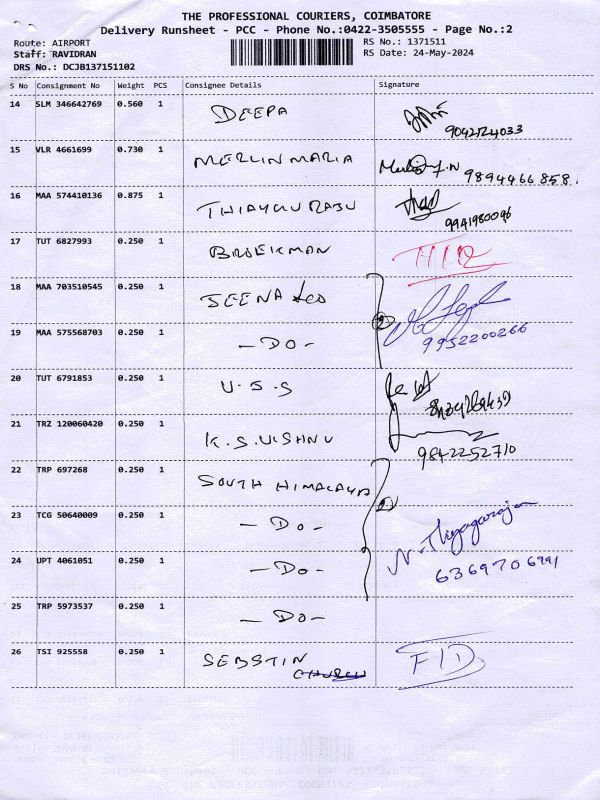 THE PROFESSIONAL COURIERS, COIMBATORE
Delivery Runsheet - PCC - Phone No.:0422-3505555 - Page No.:2
Route: AIRPORT
RS No.: 1371511
Staff: RAVIDRAN
RS Date: 24-May-2024
DRS No.: DCJB137151102
S No Consignment No Weight PCS Consignee Details Signature
14 SLM 346642769 0.560 1 DEEPA
9042124033
15 VLR 4661699 0.730 1 MERLIN MARIA
9894466858
16 MAA 574410136 0.875 1 THIAYGU RAJU
9941980096
17 TUT 6827993 0.250 1 BROEKMAN
18 MAA 703510545 0.250 1 JEENA & CO
19 MAA 575568703 0.250 1 - DO - 2
9952200266
20 TUT 6791853 0.250 1 U.S.S
21 TRZ 120060420 0.250 1 K.S.VISHNU
9842252710
22 TRP 697268 0.250 1 SOUTH HIMALAYA
23 TCG 50640009 0.250 1 - DO -
N. Thyagarajan
24 UPT 4061051 0.250 1 - DO -
6369706991
25 TRP 5973537 0.250 1 - DO -
26 TSI 925558 0.250 1 SEBSTIN FID
CHURCH